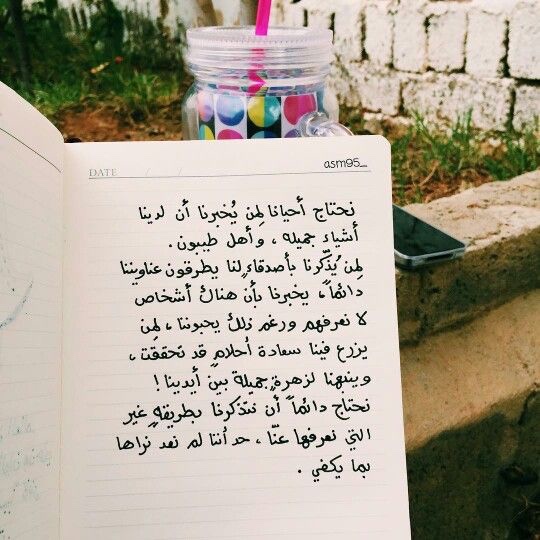 asm95_
DATE / /
نحتاج أحيانا لِمن يُخبرنا أن لدينا
أشياء جميله ، وأهل طيبون.
لِمن يُذكّرنا بأصدقاءٍ لنا يطرقون عناويننا
دائماً، يخبرنا بأن هناك أشخاص
لا نعرفهم ورغم ذلك يحبوننا ، لِمن
يزرع فينا سعادة أحلامٍ قد تحققت ،
وينبهنا لزهرةٍ جميلة بين أيدينا !
نحتاج دائماً أن نتذكرنا بطريقهٍ غير
التي نعرفها عنّا ، حد أننا لم نعد نراها
بما يكفي .